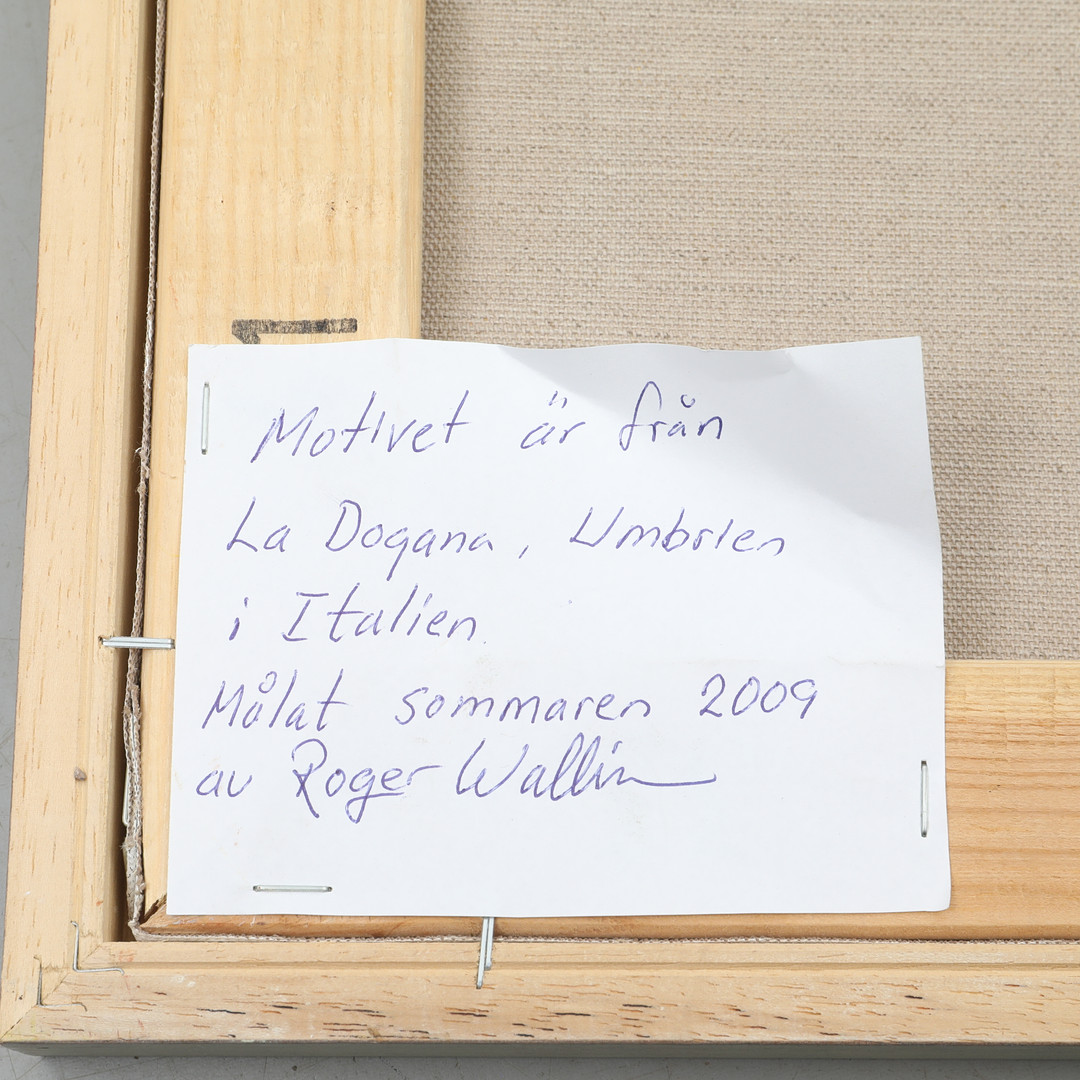 Motivet är från
La Dogana, Umbrien
i Italien.
Målat sommaren 2009
av Roger Wallin